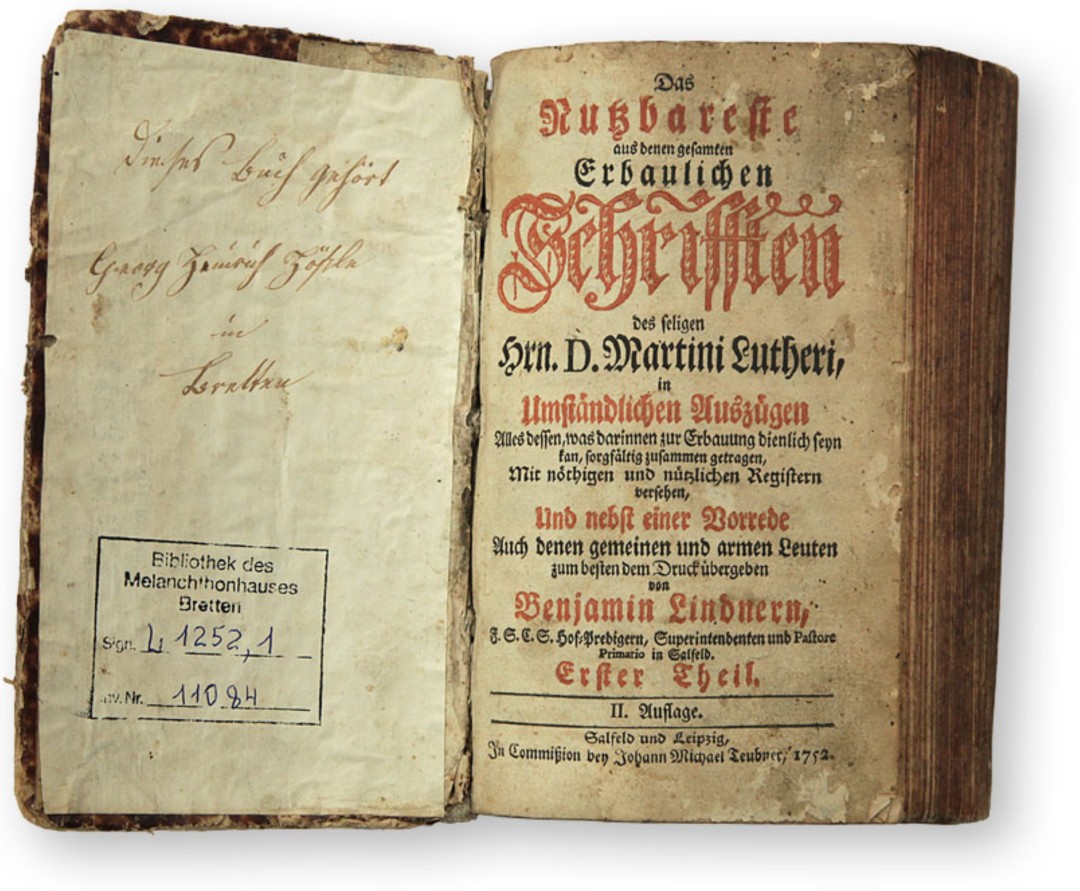 Dieses Buch gehört
Georg Heinrich
in
Bretten
Bibliothek des
Melanchthonhauses
Bretten
Sign. L 1252,1
Inv. Nr. 11084
Das
Nutzbareste
aus denen gesamten
Erbaulichen
Schrifften
des seligen
Hrn. D. Martini Lutheri,
in
Umständlichen Auszügen
Alles dessen, was darinnen zur Erbauung dienlich seyn
kan, sorgfältig zusammen getragen,
Mit nöthigen und nützlichen Registern
versehen,
Und nebst einer Vorrede
Auch denen gemeinen und armen Leuten
zum besten dem Druck übergeben
von
Benjamin Lindnern,
F. S. C. S. Hof-Predigern, Superintendenten und Pastore
Primario in Salfeld.
Erster Theil.
II. Auflage.
Salfeld und Leipzig,
In Commißion bey Johann Michael Teubner, 1752.